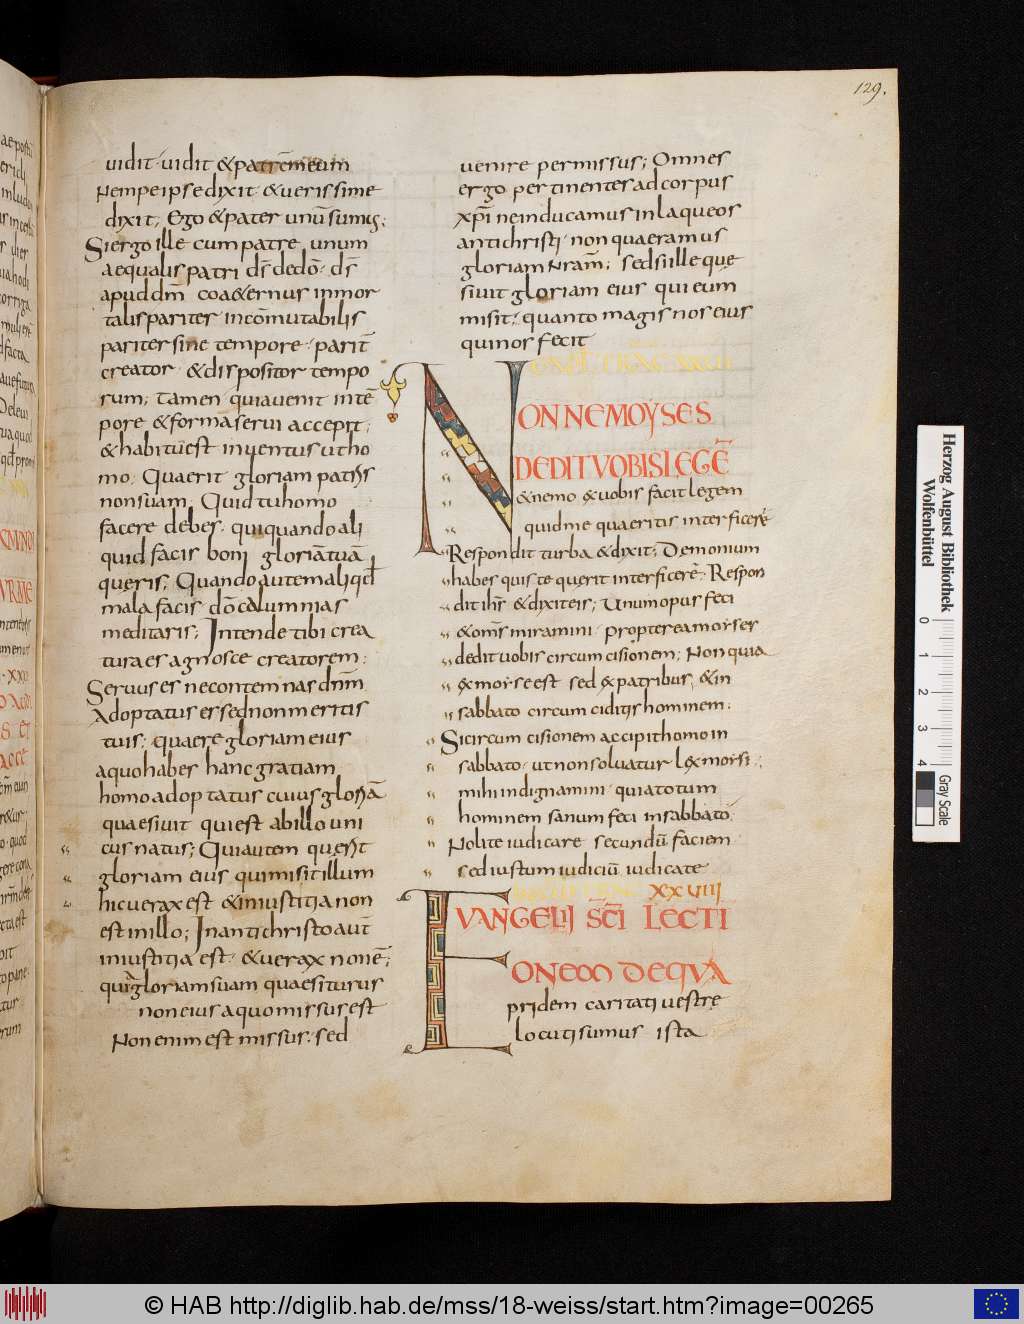 129.
uidit· uidit & patrē meum
Nempe ipse dixit· & uerissime
dixit; Ego & pater unū sumus;
Si ergo ille cum patre unum
aequalis patri dr̄ de dō· dr̄
apud dm̄ coa&ernus inmor
talis pariter incōmutabilis
pariter sine tempore· parit̄
creator & dispositor tempo
rum; tamen quia uenit in tē
pore & forma serui accepit;
& habitu ē inuentus ut ho
mo· Quaerit gloriam patris
non suam; Quid tu homo
facere debes· qui quando ali
quid facis boni gloriā tuā
queris; Quando autem aliqđ
mala facis dō calumnias
meditaris; Intende tibi crea
tura es agnosce creatorem;
Seruus es ne contemnas dnm̄
Adoptatus es sed non meritis
tuis; quaere gloriam eius
a quo habes hanc gratiam
homo adoptatus cuius gloriā
quaesiuit qui est ab illo uni
cus natus; Qui autem querit
gloriam eius qui misit illum
hic uerax est & iniustitia non
est in illo; In antichristo aut̄
iniustitia est· & uerax non ē;
quia gloriam suam quaesiturus
non eius a quo missus est
Non enim est missus· sed
uenire permissus; Omnes
ergo pertinentes ad corpus
xp̄i ne inducamus in laqueos
antichristi· non quaeramus
gloriam nr̄am; sed si ille que
siuit gloriam eius qui eum
misit; quanto magis nos eius
qui nos fecit
NONNE MOYSES
DEDIT VOBIS LEGĒ
& nemo ex uobis facit legem
quid me quaeritis interficere
Respondit turba & dixit; Demonium
habes quis te querit interficere; Respon
dit ih̄s & dixit eis; Unum opus feci
& om̄s miramini· propterea moyses
dedit uobis circumcisionem; Non quia
ex moyse est sed ex patribus, & in
sabbato circumciditis hominem;
Si circumcisionem accipit homo in
sabbato· ut non soluatur lex moysi;
mihi indignamini· quia totum
hominem sanum feci in sabbato;
Nolite iudicare secundū faciem
sed iustum iudiciū iudicate
XXVIIII
EVANGELII SC̄I LECTI
ONEM DE QVA
pridem caritati uestrę
locuti sumus ista
Herzog August Bibliothek
Wolfenbüttel
0 1 2 3 4
Gray Scale
© HAB http://diglib.hab.de/mss/18-weiss/start.htm?image=00265